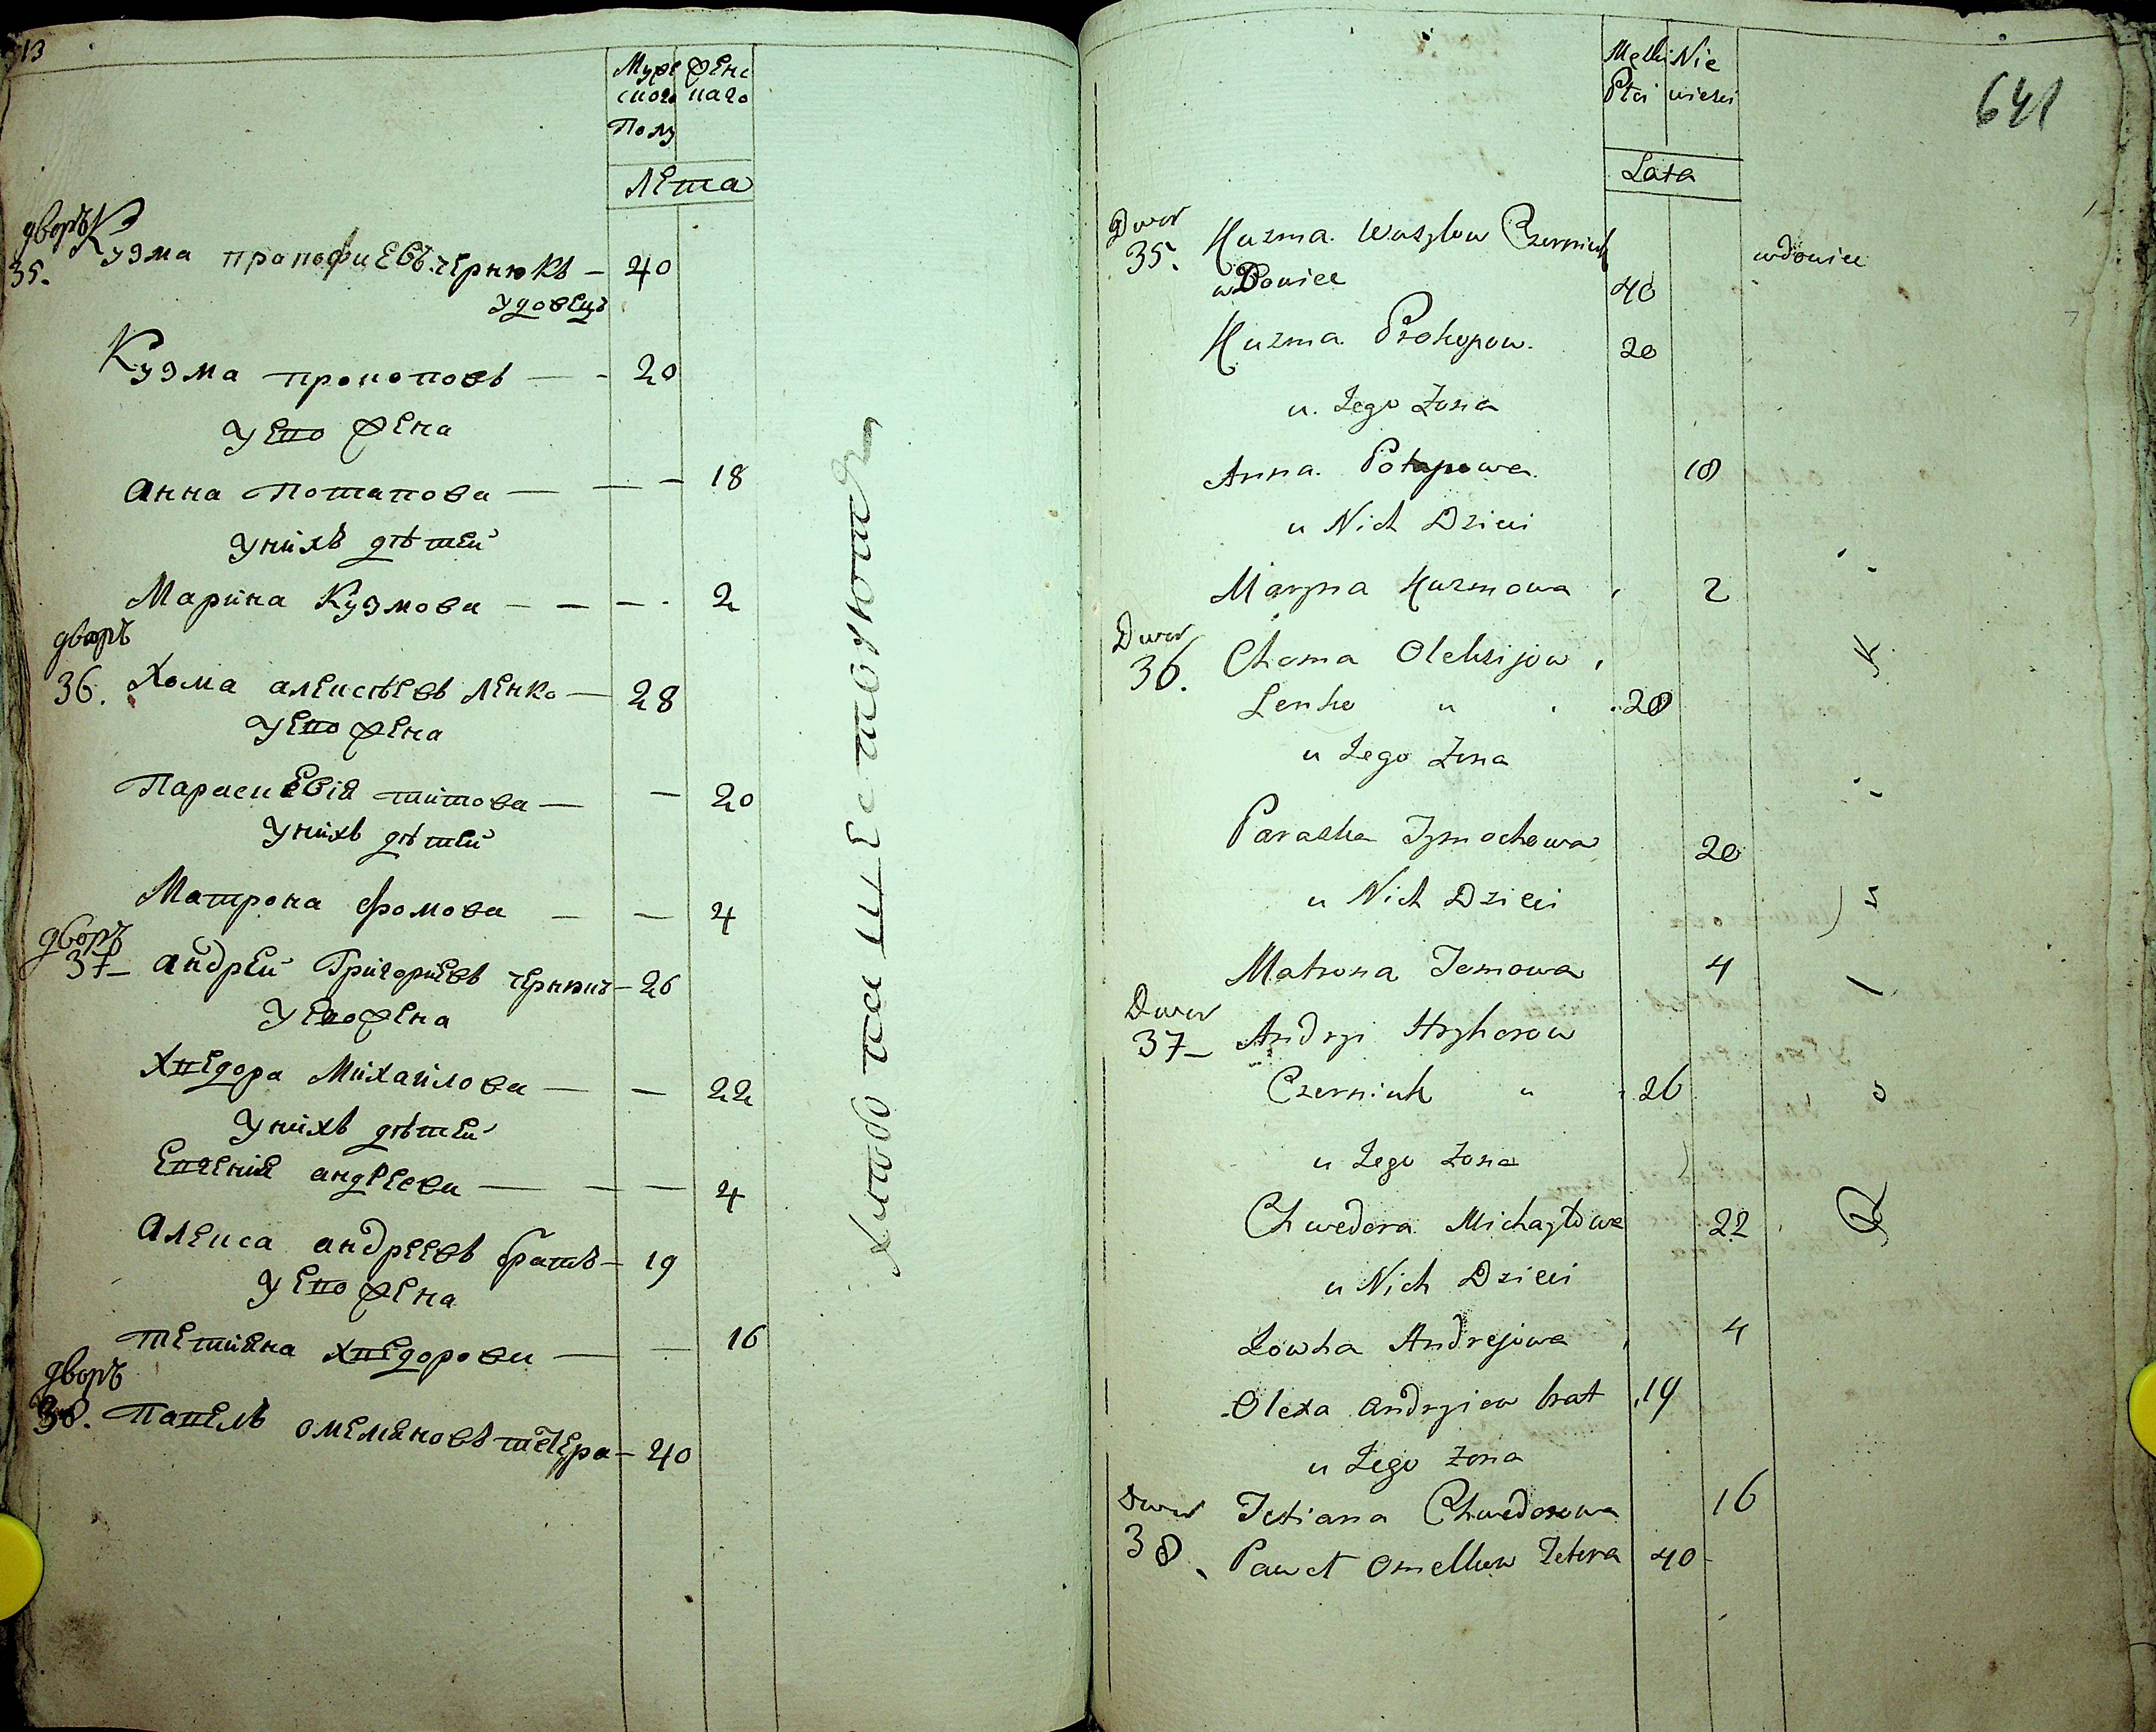 13
Муже женс
сного наго
Полу
Лета
дворъ
35. Кузма прокофиевъ чернюкъ — 40
удовецъ
Кузма проноповъ — - 20
У его жена
анна Потапова — — - 18
Унихъ дѣтей
Марина Кузмова - — — - 2
дворъ
36. Хома алексѣевъ Ленко — 28
Уего жена
Параскевія титова — - 20
Унихъ дѣтей
Матрона фомова — — 4
дворъ
37- андрей Григориевъ — 26
Уего жена
Хведора Михайлова — — 22
Унихъ дѣтей
Евгения андреева — — — 4
Алекса андреевъ братъ — 19
Уего жена
тетияна хведорова — — 16
дворъ
38. Павелъ омеляновъ тетера — 40
641
Męski Nie
Płci wieści
Lata
Dwor
35. Kuzma Wasylow Czerniuk wdowiec
wDowiec 40
Kuzma Prokopow. 20
u. Jego Żona
Anna. Potapowa. 18
u Nich Dzieci
Maryna Kuzmowa 2
Dwor
36. Choma Oleksijow
Lenko " . 28
u Jego Zona
Paraska Tymochowa 20
u Nich Dzieci
Matrona Tomowa 4
Dwor
37- Andryi Hryhorow
Czerniuk " 26
u Jego zona
Chwedora Michayłowa 22
u Nich Dzieci
Jowha Andrejowa 4
Olexa andryiow brat 19
u Jego zona
Dwor Tetiana Chwedorowa 16
38. Paweł Omelkow Tetera 40